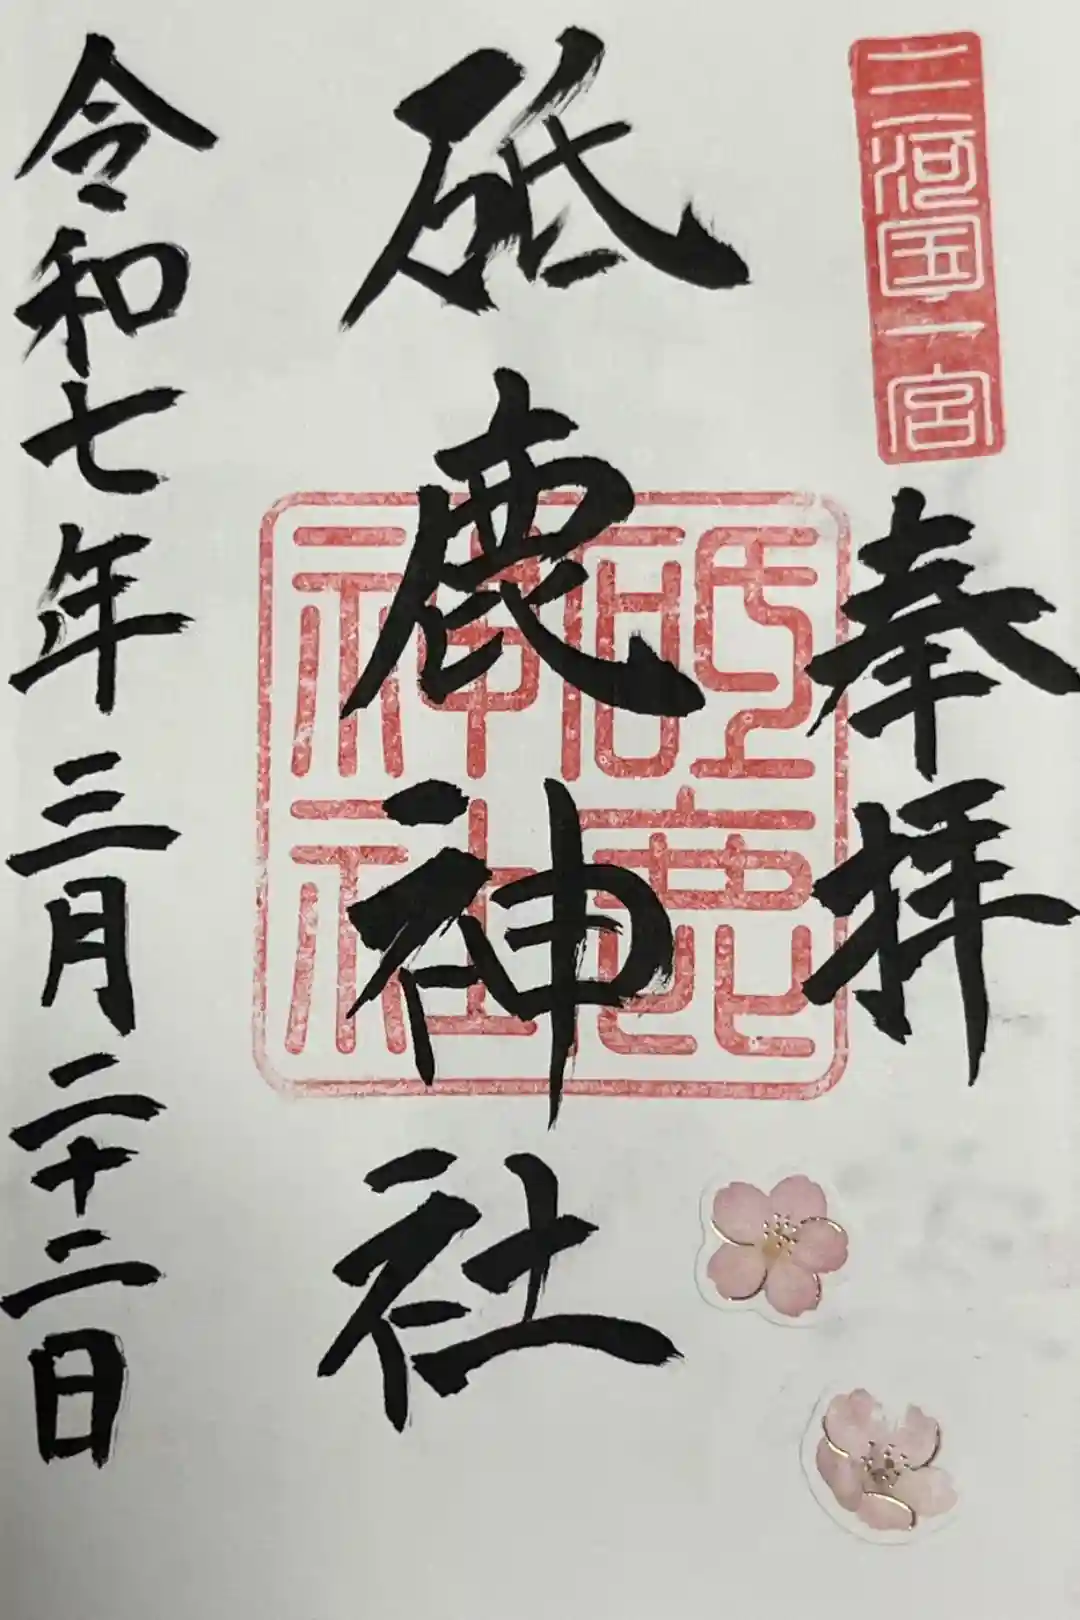 三河国一宮
奉拝
砥鹿神社
砥鹿神社
令和七年三月二十二日